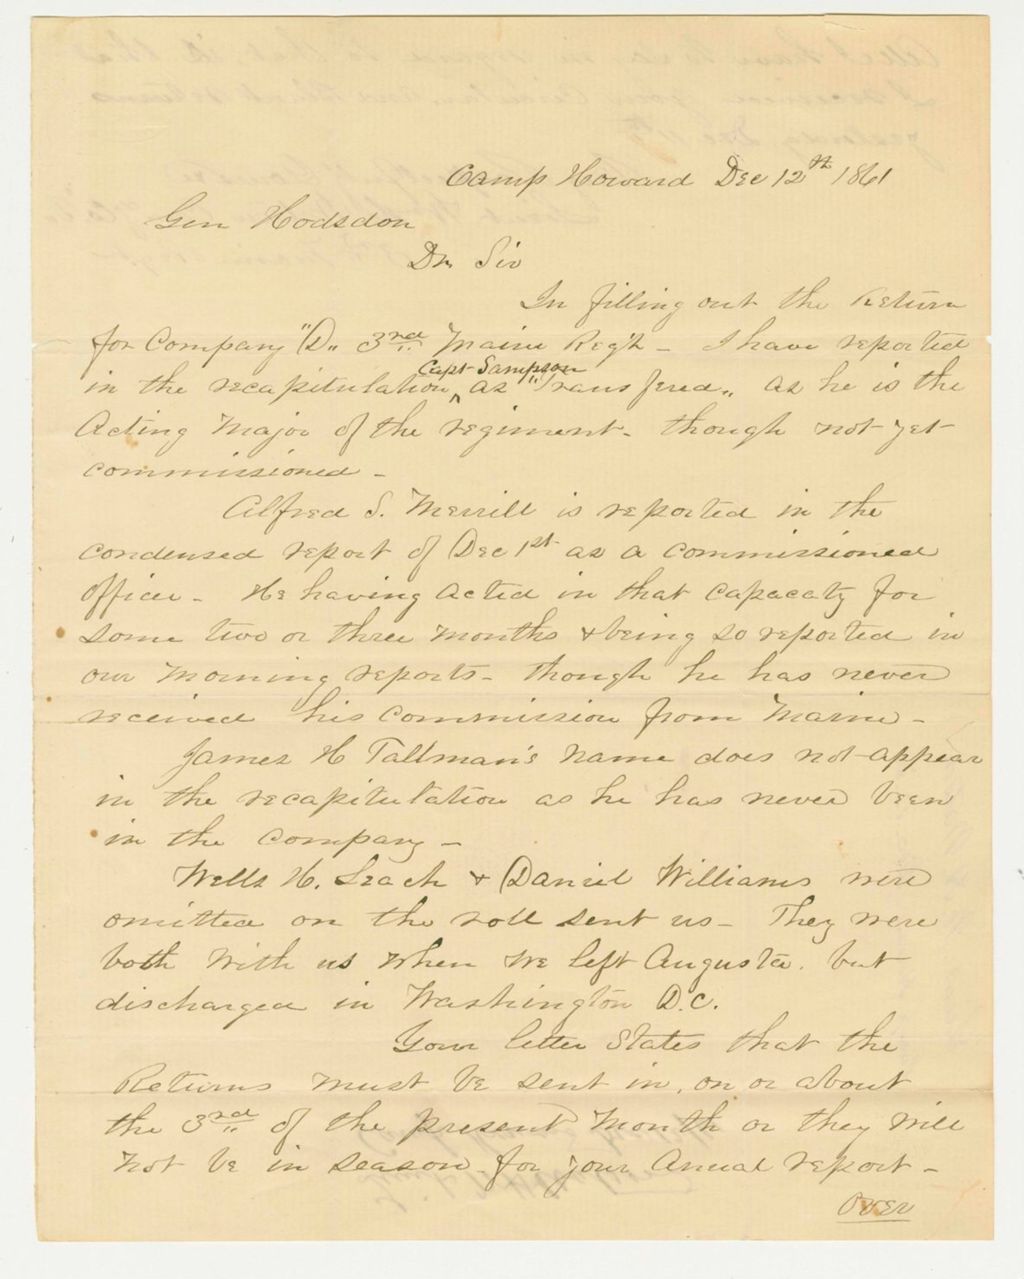 Camp Howard Dec 12th 1861
Gen Hodsdon
Dr. Sir
In filling out the Return
for Company "D" 3rd Maine Regt - I have reported
Capt Sampson
in the recapitulation ^ as "Transfered" as he is the
Acting Major of the regiment - though not yet
commissioned -
Alfred S. Merrill is reported in the
condensed report of Dec 1st as a commissioned
officer - He having acted in that capacaty for
some two or three months & being so reported in
our morning reports - though he has never
received his commission from Maine -
James H Tallman's name does not appear
in the recapitulation as he has never been
in the company -
Wells H. Leach & Daniel Williams were
omitted on the roll sent us - They were
both with us when we left Augusta. but
discharged in Washington D.C.
Your letter States that the
Returns must be sent in, on or about
the 3rd of the present month or they will
not be in season - for your Annual report -
Over